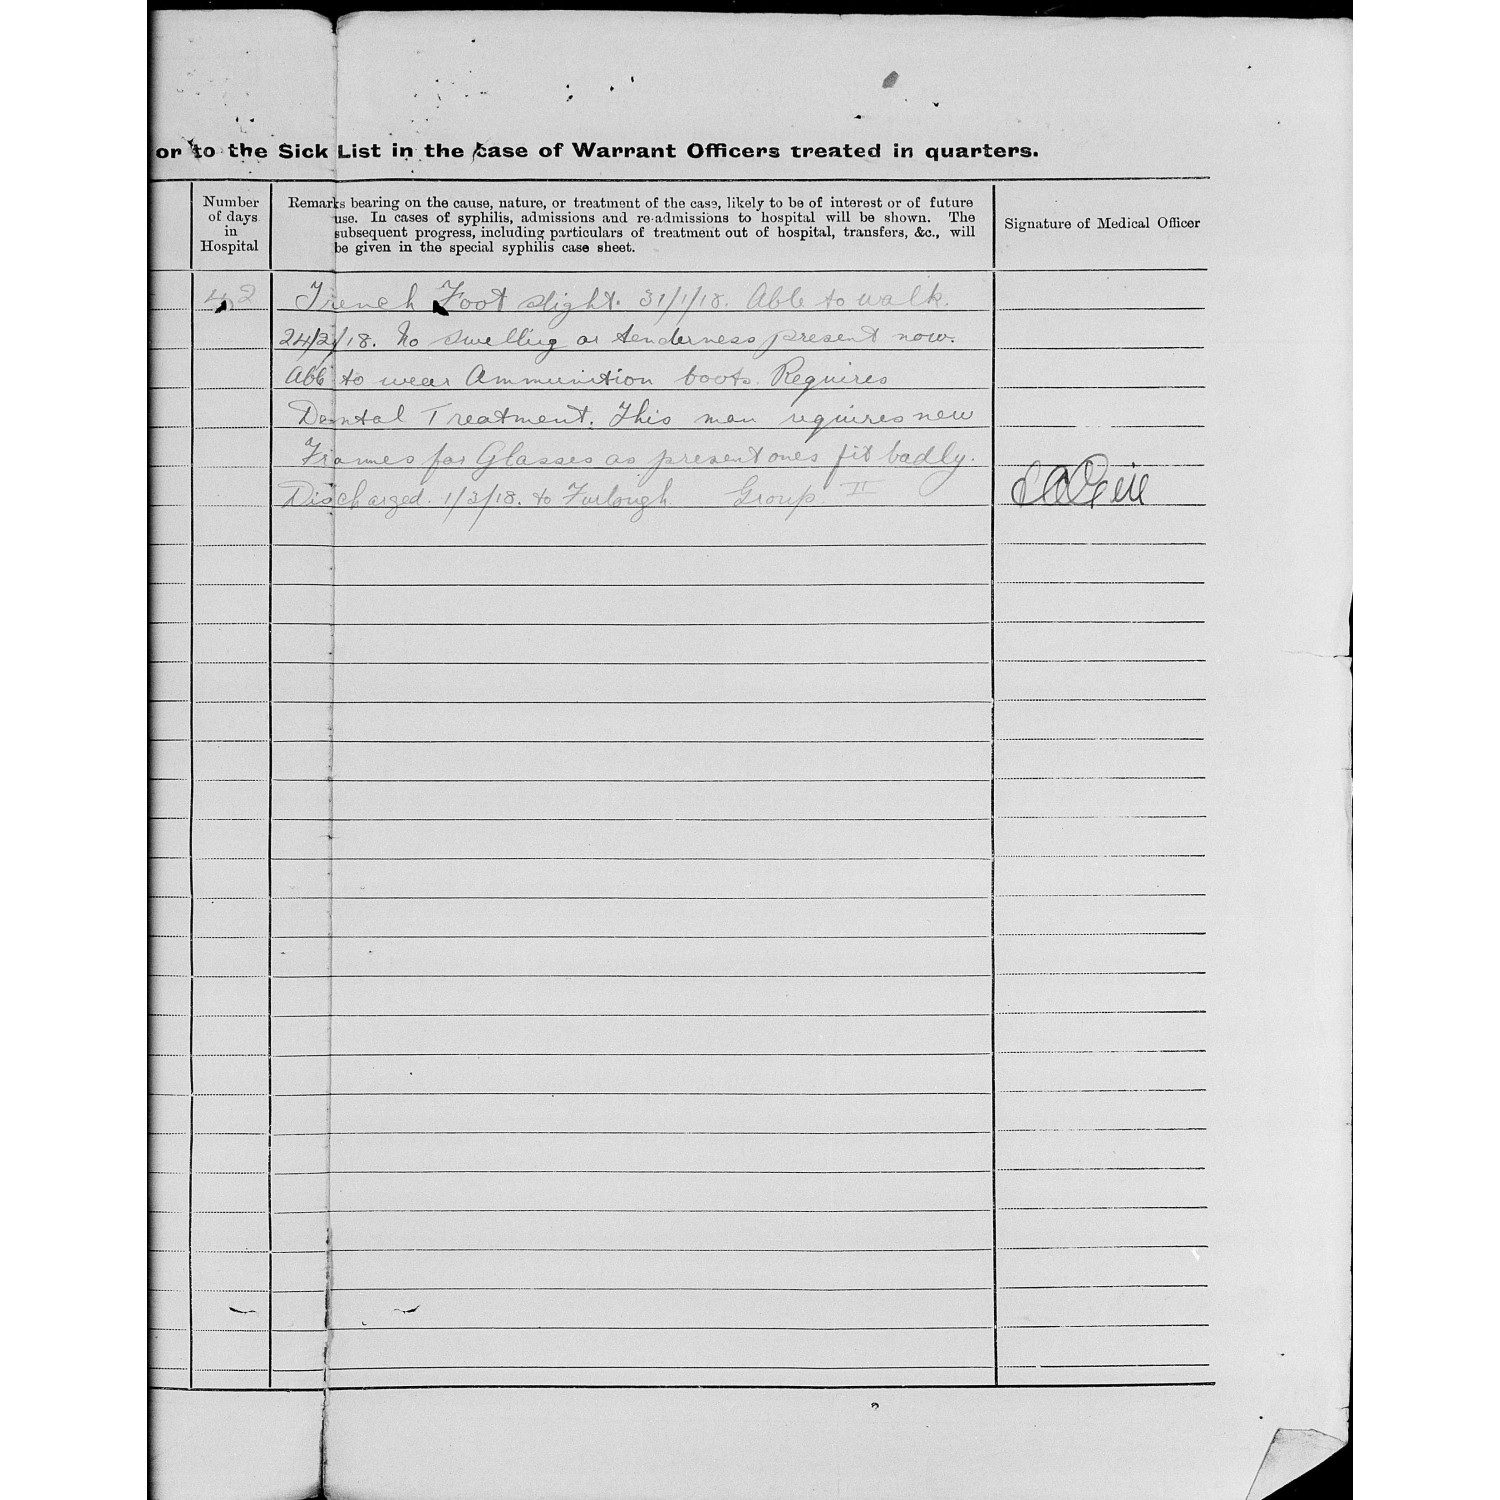 or to the Sick List in the case of Warrant Officers treated in quarters.
Number
of days
in
Hospital
Remarks bearing on the cause, nature, or treatment of the case, likely to be of interest or of future
use. In cases of syphilis, admissions and re-admissions to hospital will be shown. The
subsequent progress, including particulars of treatment out of hospital, transfers, &c., will
be given in the special syphilis case sheet.
Signature of Medical Officer
42 Trench Foot slight. 31/1/18. Able to walk.
24/2/18. No swelling or tenderness present now.
Able to wear Ammunition boots. Requires
Dental Treatment. This man requires new
Frames for Glasses as present ones fit badly.
Discharged. 1/3/18. to Furlough Group II